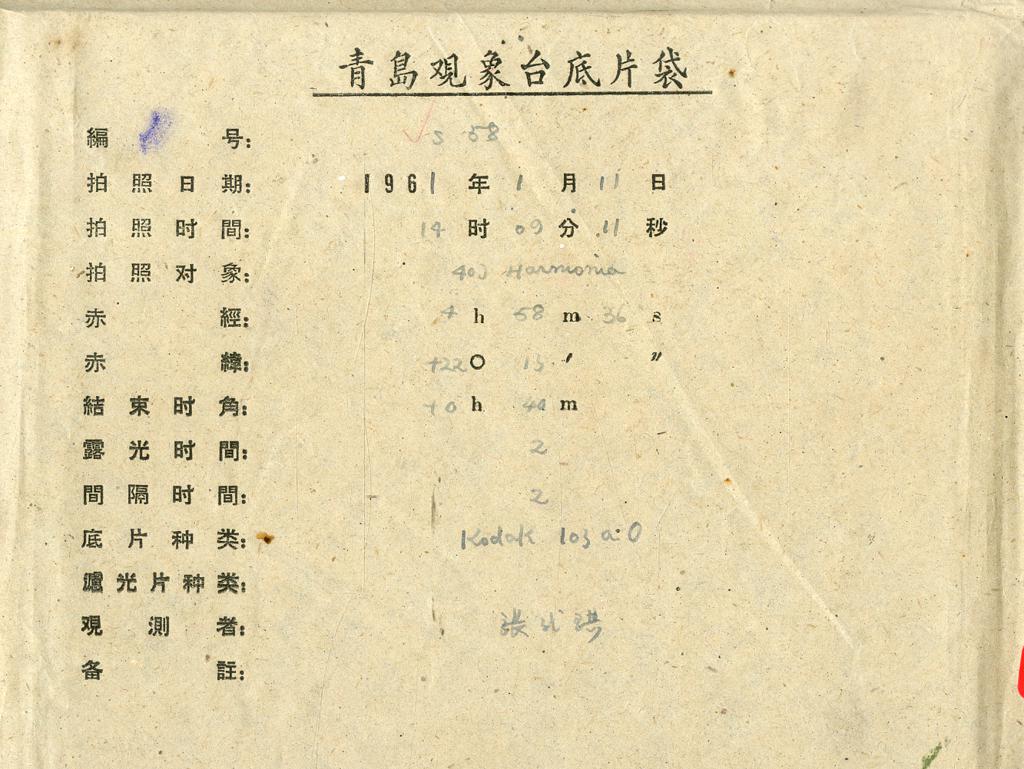 青島观象台底片袋
編 号: S 58
拍照日期: 1961年1月11日
拍照时間: 14时09分11秒
拍照对象: 40 Harmonia
赤 經: 4h 58m 36s
赤 緯: +22° 15′ ″
結束时角: +0h 40m
露光时間: 2
間隔时間: 2
底片种类: Kodak 103 a-O
濾光片种类:
观測者: 張
备 註: